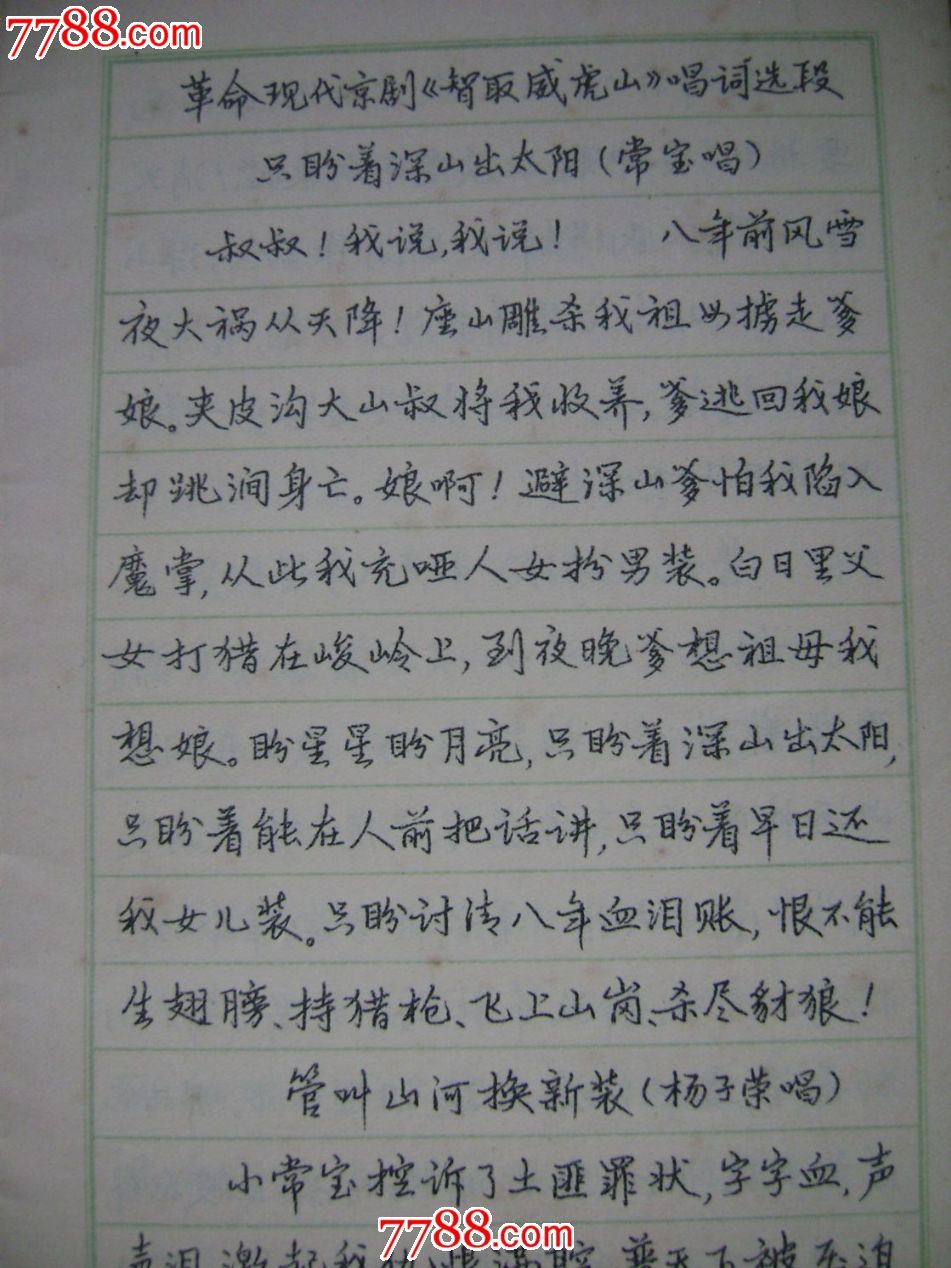 7788.com
7788.com
革命现代京剧《智取威虎山》唱词选段
只盼着深山出太阳（常宝唱）
叔叔！我说，我说！ 八年前风雪
夜大祸从天降！座山雕杀我祖母掳走爹
娘。夹皮沟大山叔将我收养，爹逃回我娘
却跳涧身亡。娘啊！避深山爹怕我陷入
魔掌，从此我充哑人女扮男装。白日里父
女打猎在峻岭上，到夜晚爹想祖母我
想娘。盼星星盼月亮，只盼着深山出太阳，
只盼着能在人前把话讲，只盼着早日还
我女儿装。只盼讨清八年血泪账，恨不能
生翅膀、持猎枪、飞上山岗、杀尽豺狼！
管叫山河换新装（杨子荣唱）
小常宝控诉了土匪罪状，字字血，声
声泪激起我仇恨满腔，普天下被压迫
7788.com